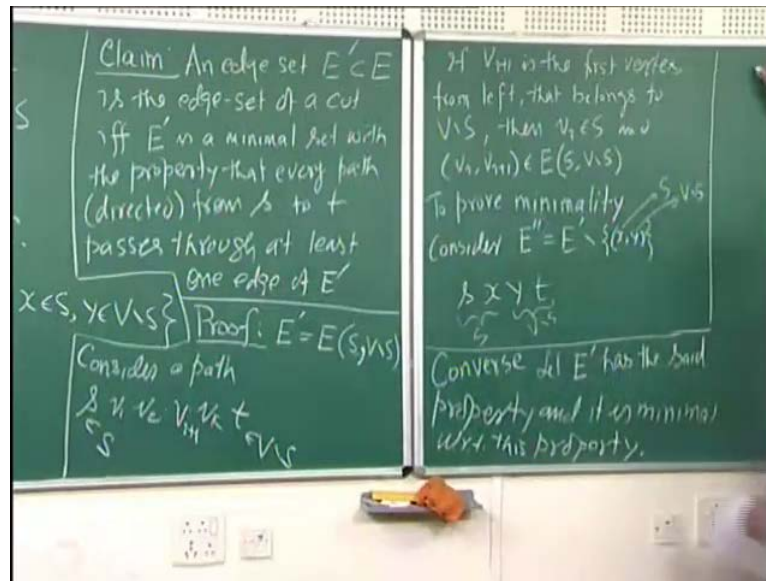 S
Claim: An edge set E' ⊂ E
is the edge-set of a cut
iff E' is a minimal set with
the property that every path
(directed) from s to t
passes through at least
one edge of E'
x ∈ S, y ∈ V\S}
Proof: E' = E(S, V\S)
Consider a path
s v₁ v₂ vᵢ₊₁ vₖ t
∈S ∈V\S
If vᵢ₊₁ is the first vertex
from left, that belongs to
V\S, then vᵢ ∈ S and
(vᵢ, vᵢ₊₁) ∈ E(S, V\S)
To prove minimality
S, V\S
Consider E'' = E' \ {(x,y)}
s x y t
S V\S
Converse let E' has the said
property and it is minimal
w.r.t. this property.